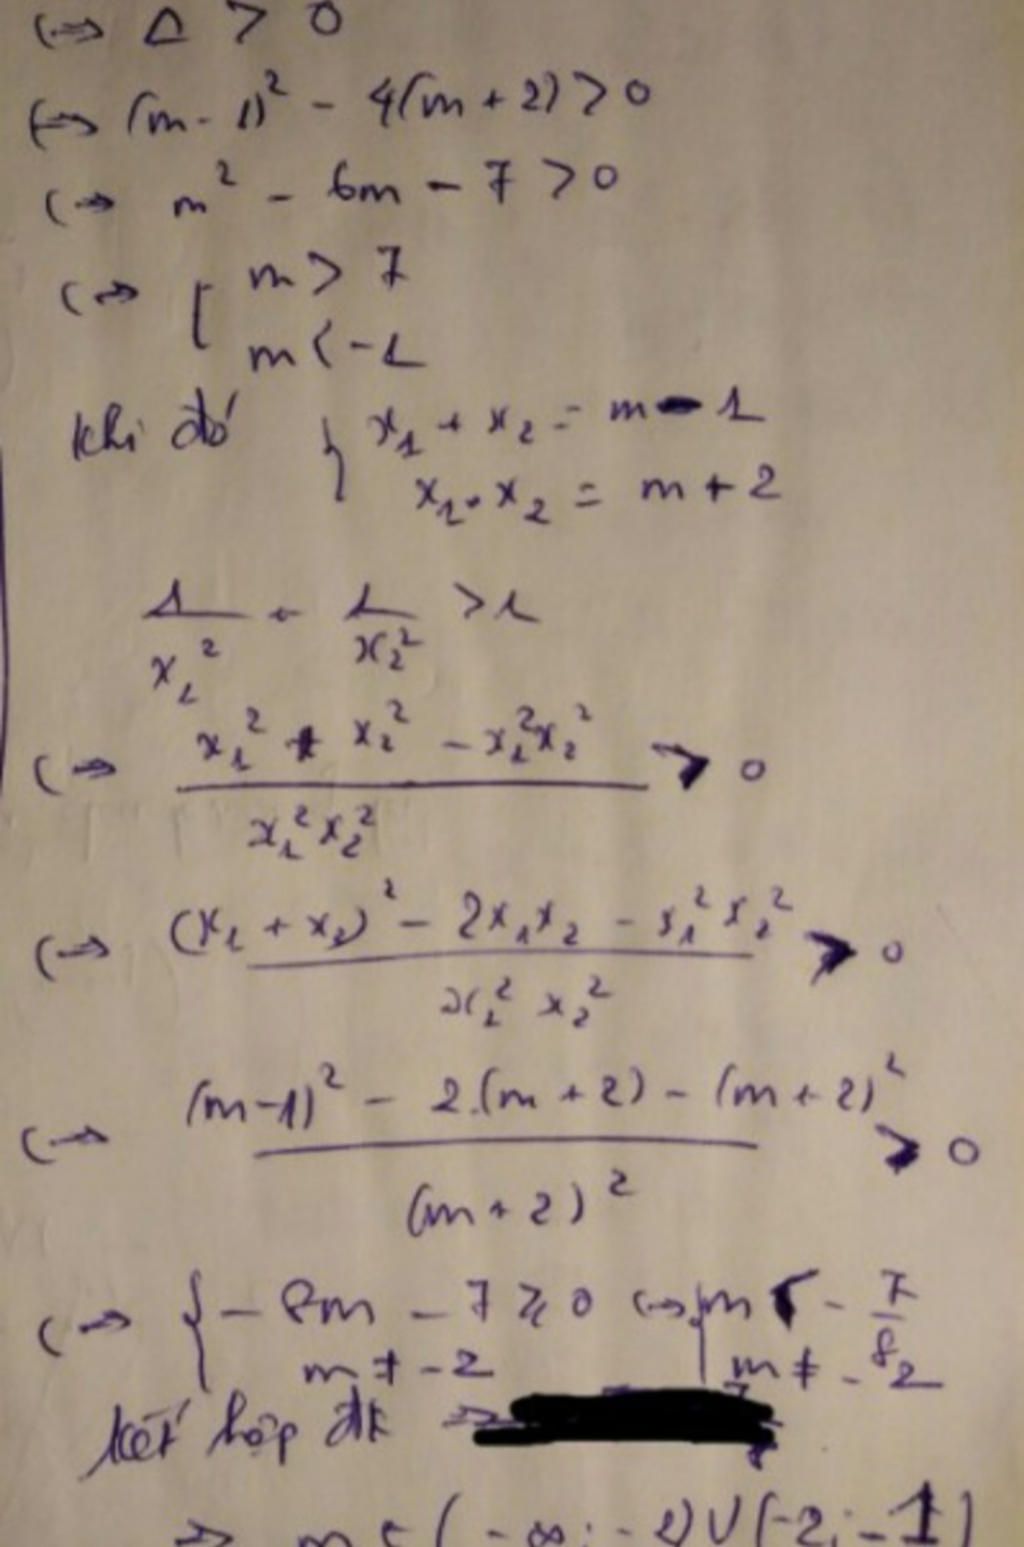 <=> Δ > 0
<=> (m-1)² - 4(m+2) > 0
<=> m² - 6m - 7 > 0
<=> [ m > 7
m < -1
Khi đó { x₁ + x₂ = m - 1
x₁.x₂ = m + 2
1/x₁² + 1/x₂² > 1
<=> (x₁² + x₂² - x₁²x₂²)/(x₁²x₂²) > 0
<=> ((x₁ + x₂)² - 2x₁x₂ - x₁²x₂²)/(x₁² x₂²) > 0
<=> ((m-1)² - 2.(m+2) - (m+2)²)/(m+2)² > 0
<=> { -8m - 7 ≥ 0 <=> { m < -7/8
m ≠ -2 m ≠ -2
kết hợp đk =>
=> m ∈ (-∞; -2) ∪ (-2; -1)